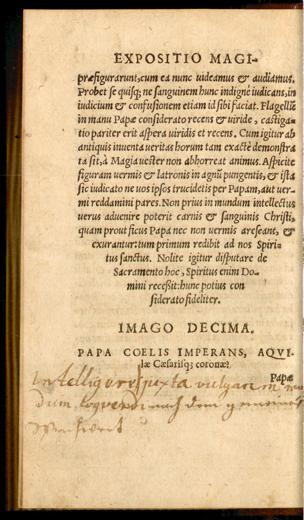 EXPOSITIO MAGI-
præfigurarunt, cum ea nunc uideamus & audiamus.
Probet se quisq; ne sanguinem hunc indigne iudicans, in
iudicium & confusionem etiam id sibi faciat. Flagellũ
in manu Papæ considerato recens & uiride, castiga-
tio pariter erit aspera uiridis et recens. Cum igitur ab
antiquis inuenta ueritas horum tam exactè demonstra
ta sit, à Magia uester non abhorreat animus. Aspicite
figuram uermis & latronis in agnũ pungentis, & ista
sic iudicato ne uos ipsos trucidetis per Papam, aut uer-
mi reddamini pares. Non prius in mundum intellectus
uerus aduenire poterit carnis & sanguinis Christi,
quam prout ficus Papa nec non uermis arescant, &
exurantur: tum primum redibit ad nos Spiri-
tus sanctus. Nolite igitur disputare de
Sacramento hoc, Spiritus enim Do-
mini recessit: hunc potius con
siderato fideliter.
IMAGO DECIMA.
PAPA COELIS IMPERANS, AQVI-
læ Cæsarisq; coronæ.
Papæ
juxta vulgarem mo
dum loquendi nach dem gemeinen